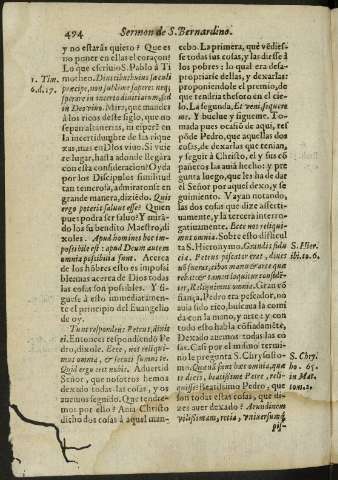 494
Sermon de S. Bernardino.
y no estarás quieto? Que es
no poner en ellas el coraçon?
Lo que escriuio S. Pablo à Ti
1. Tim.
6. d. 17.
motheo. Diuitibus huius sæculi
præcipe, non sublime sapere: neq;
sperare in incerto diuitiarum, sed
in Deo viuo. Mira, que mandes
à los ricos deste siglo, que no
sepan altanerias, ni esperē en
la incertidumbre de las rique
zas, mas en Dios viuo. Si vuie
re lugar, hasta adonde llegàra
con esta consideracion! Oyda
por los Discipulos similitud
tan temerosa, admiraronse en
grande manera, diziēdo. Quis
ergo poterit saluus esse? Quien
pues podra ser saluo? Y mirã
do los su bendito Maestro, di
xoles. Apud homines hoc im-
possibile est: apud Deum autem
omnia possibilia sunt. Acerca
de los hõbres esto es imposi
ble: mas acerca de Dios todas
las cosas son posibles. Y si-
guese à esto immediatamēte
el principio del Euangelio
de oy.
Tunc respondens Petrus, dixit
ei. Entonces respondiendo Pe
dro, dixole. Ecce nos, reliqui-
mus omnia, & secuti sumus te.
Quid ergo erit nobis. Aduertid
Señor, que nosotros hemos
dexado todas las cosas, y os
auemos seguido. Que tendre-
mos por ello? Auia Christo
dicho dos cosas à aquel man-
cebo. La primera, que vēdies-
se todas sus cosas, y las diesse à
los pobres: lo qual era desa-
propriarse dellas, y dexarlas:
proponiendole el premio, de
que tendria thesoro en el cie-
lo. La segunda, Et veni, sequere
me. Y buelue y sigueme. To-
mada pues ocasiõ de aqui, res
põde Pedro, que aquellas dos
cosas, de dexarlas que tenian,
y seguir à Christo, el y sus cõ
pañeros las auiã hecho: y pre
gunta luego, que les ha de dar
el Señor por aquel dexo, y se
guimiento. Vayan notando,
las dos cosas que dize asserti-
uamente, y la tercera interro-
gatiuamente. Ecce nos reliqui-
mus omnia. Sobre esto dificulta
S. Hieronymo. Grandis fidu
cia. Petrus piscator erat, diues
S. Hier.
ibi. to. 6.
Gran cõ
fiança. Pedro era pescador, no
auia sido rico, buscaua la comi
da con la mano, y arte: y con
todo esto habla cõfiadamēte,
Dexado auemos todas las co
sas. Casi por el mismo termi-
no le pregunta S. Chrysosto-
S. Chry.
ho. 65.
in Mat.
tom. 2.
mo. Quæ nam sunt hæc omnia, quæ
te dicis, beatissime Petre, reli-
quisse? Beatissimo Pedro, que
son todas estas cosas, que di-
zes auer dexado? Arundinem
vilissimam, retia, vniuersumq́
pis-